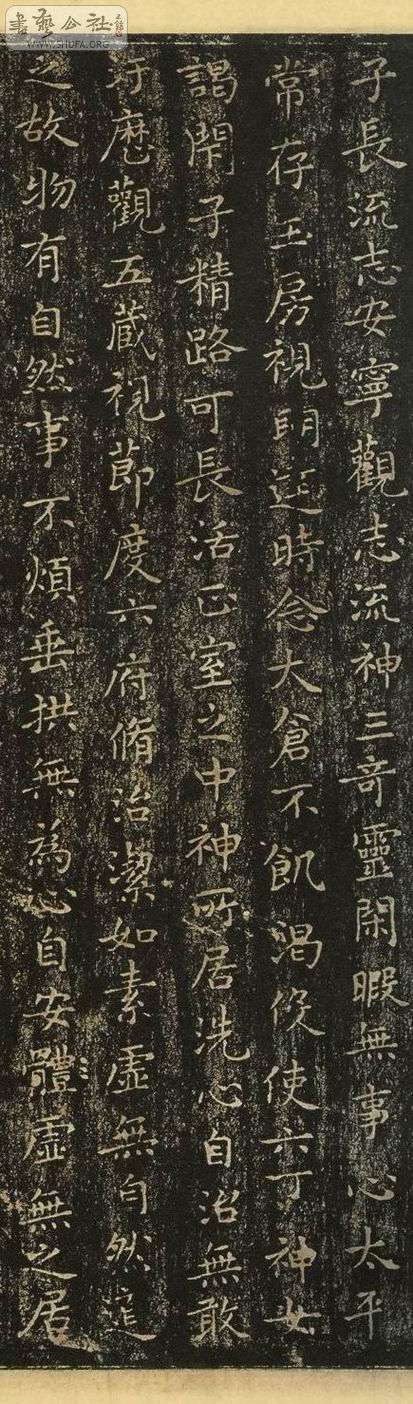 書藝公社
WWW.SHUFA.ORG
子長流志安寧觀志流神三奇靈閑暇無事心太平
常存玉房視明達時念大倉不飢渴役使六丁神女
謁閉子精路可長活正室之中神所居洗心自治無敢
汙歷觀五藏視節度六府脩治潔如素虛無自然道
之故物有自然事不煩垂拱無為心自安體虛無之居